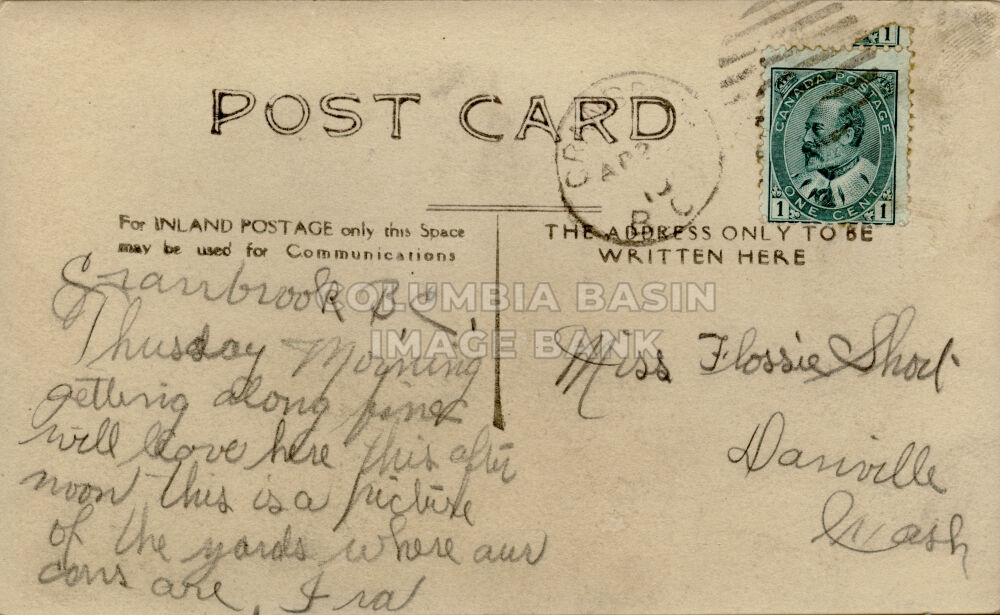 POST CARD
1
CANADA POSTAGE
ONE CENT
1 1
APR
B
For INLAND POSTAGE only this Space
may be used for Communications
THE ADDRESS ONLY TO BE
WRITTEN HERE
COLUMBIA BASIN
IMAGE BANK
Cranbrook B.C.
Thusday Morning
getting along fine
will leave here this after
noon this is a picture
of the yards where our
cars are. Ira
Miss Flossie
Danville
Wash